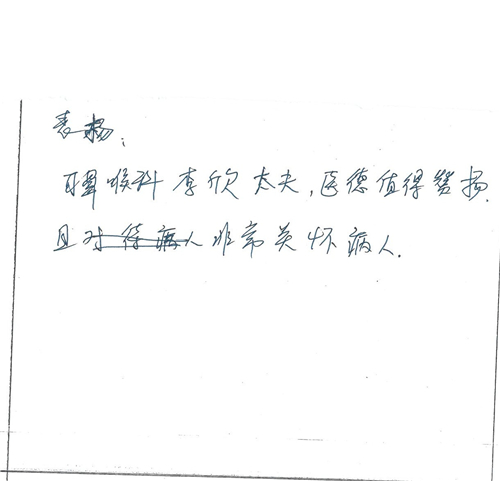 表扬：
耳鼻喉科李欣大夫，医德值得赞扬.
且对待病人非常关怀病人.